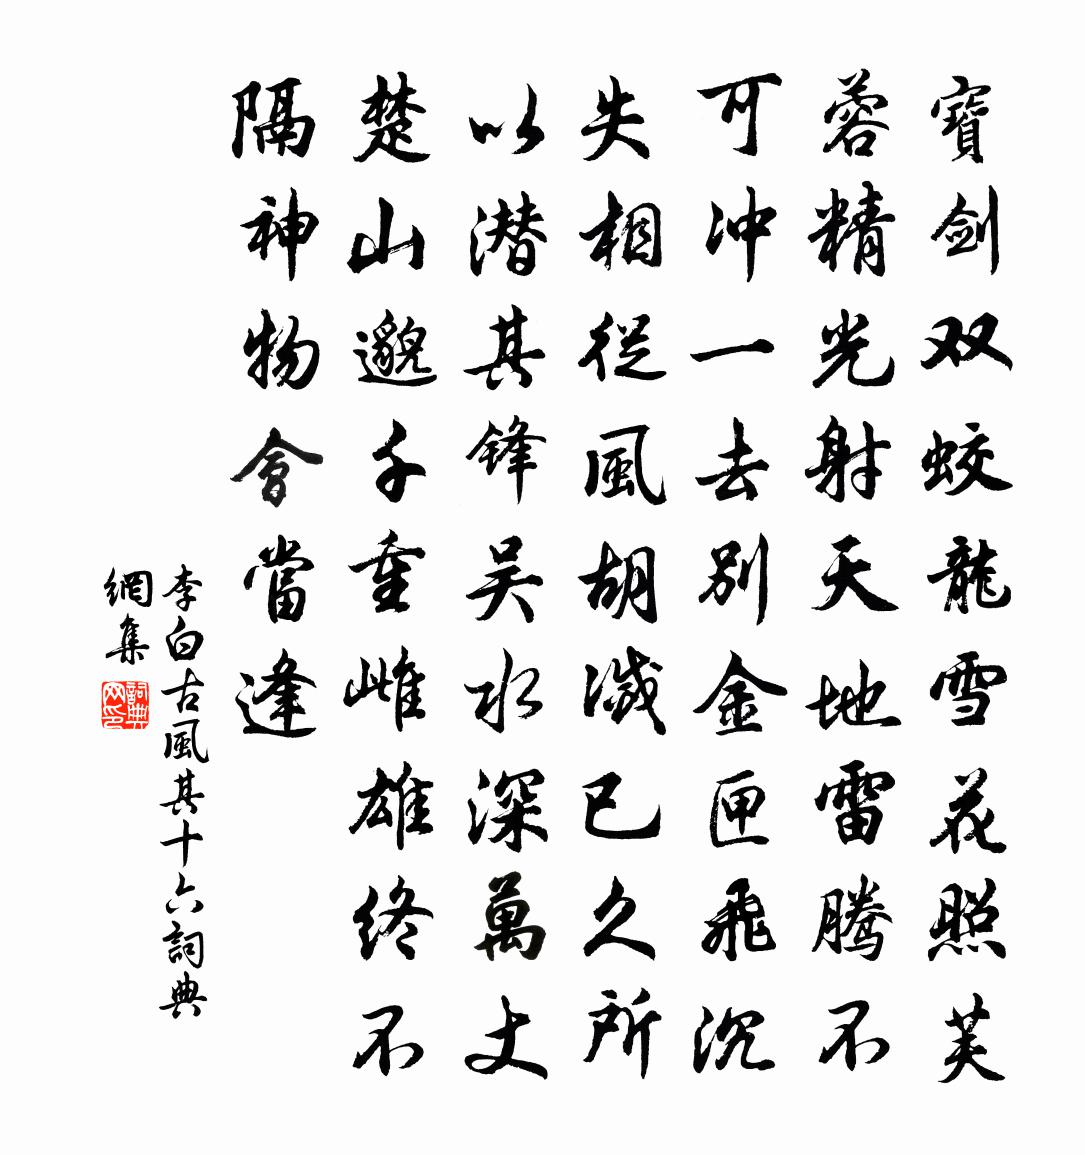 寶剑双蛟龍雪花照芙
蓉精光射天地雷腾不
可冲一去别金匣飛沉
失相從風胡滅已久所
以潜其锋吴水深萬丈
楚山邈千重雌雄终不
隔神物會當逢
李白古風其十六詞典
網集
詞典
网印